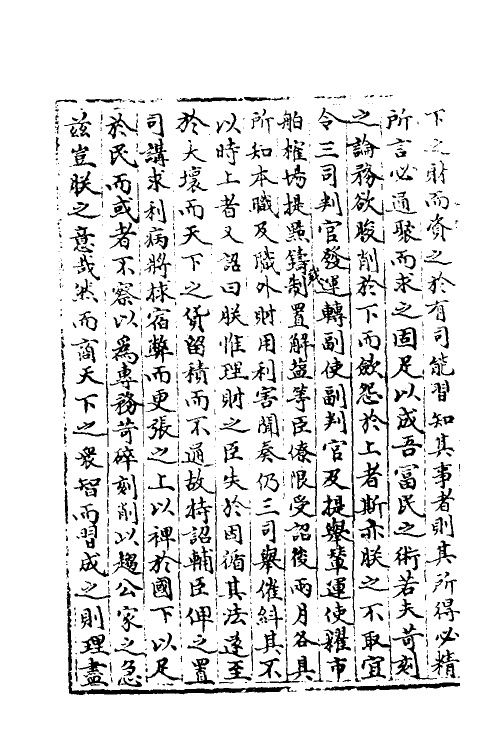 下之財而資之於有司能習知其事者則其所得必精
所言必通聚而求之固足以成吾富民之術若夫苛刻
之論務欲朘削於下而斂怨於上者斯亦朕之不取宜
令三司判官發運轉副使副判官及提舉輦運使糴市
舶榷場提點鑄制置解盐等臣僚限受詔後兩月各具
所知本職及職外財用利害聞奏仍三司舉催糾其不
以時上者又詔曰朕惟理財之臣失於因循其法遂至
於大壞而天下之貨留積而不通故特詔輔臣俾之置
司講求利病將捄宿弊而更張之上以裨於國下以足
於民而或者不察以爲専務苛碎刻削以趨公家之急
兹豈朕之意哉然而商天下之衆智而習成之則理盡